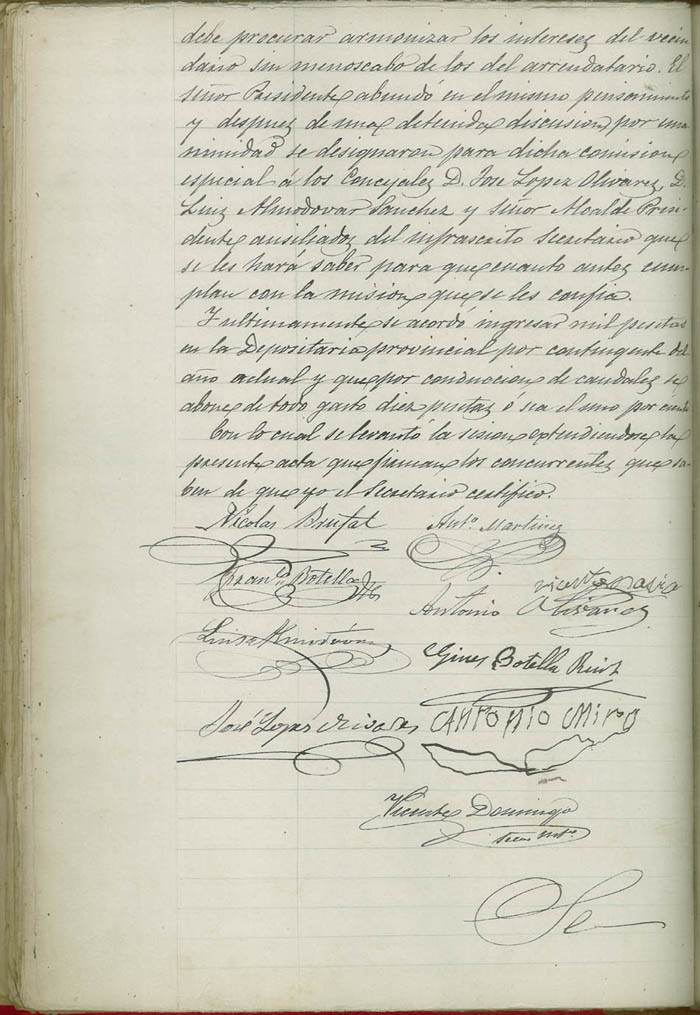 debe procurar armonizar los intereses del vecin
dario sin menoscabo de los del arrendatario. El
señor Presidente abundó en el mismo pensamiento
y despues de una detenida discusion por una
nimidad se designaron para dicha comision
especial á los Concejales D. Jose Lopez Olivarez, D.
Luiz Almodovar Sanchez y señor Alcalde Presi-
dente ausiliados del infrascrito Secretario que
se les hará saber para que cuanto antes cum-
plan con la mision que se les confia.
Y ultimamente se acordó ingresar mil pesetas
en la Depositaria provincial por contingente del
año actual y que por conduccion de caudales se
abone de todo gasto diez pesetas ó sea el uno por ciento
Con lo cual se levantó la sesion extendiendose la
presente acta que firman los concurrentes que sa-
ben de que yo el Secretario certifico.
Nicolas Brufal Anto. Martinez
Franco. Botella Vicente
Antonio Olivarez
Luis Almodóvar
Gines Botella
José Lopez Olivares ANTONIO MIRO
Vicente Domingo